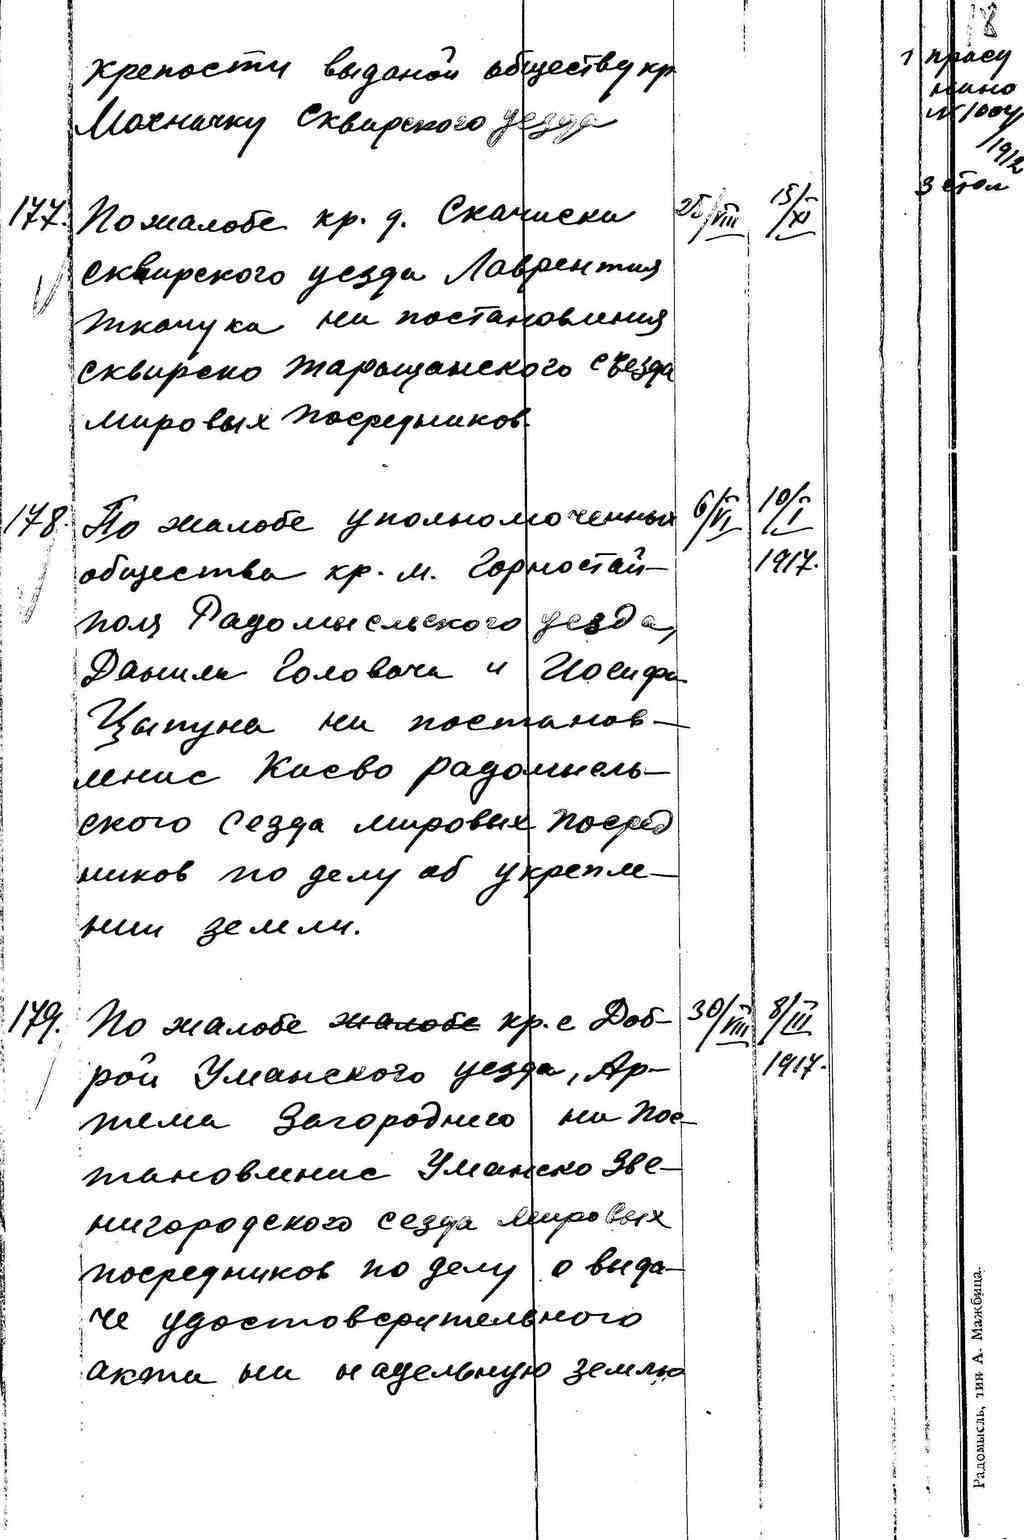 18
крепости выданой обществу кр
Мохначку Сквирского уезда
1 прису
нино
1912
3 стол
177. По жалобе кр. д. Скачиски 25/VIII 15/XI
сквирского уезда Лаврентия
Ткачука на постановления
сквирско таращанского съезда
мировых посредников.
178. По жалобе уполномоченных 6/VI 10/I
общества кр. м. Горностай- 1917.
поля Радомысльского уезда,
Данила Головача и Иосифа
Цыпуна на постанов-
ление Киево радомысль-
ского сезда мировых посред
ников по делу об укрепле-
нии земли.
179. По жалобе жалобе кр. с Доб- 30/VIII 8/III
рой Уманского уезда, Ар- 1917.
тема Загороднего на пос-
тановление Уманско Зве-
нигородского сезда мировых
посредников по делу о выда-
че удостоверительного
акта на надельную землю
Радомысль, тип А. Мажбица.